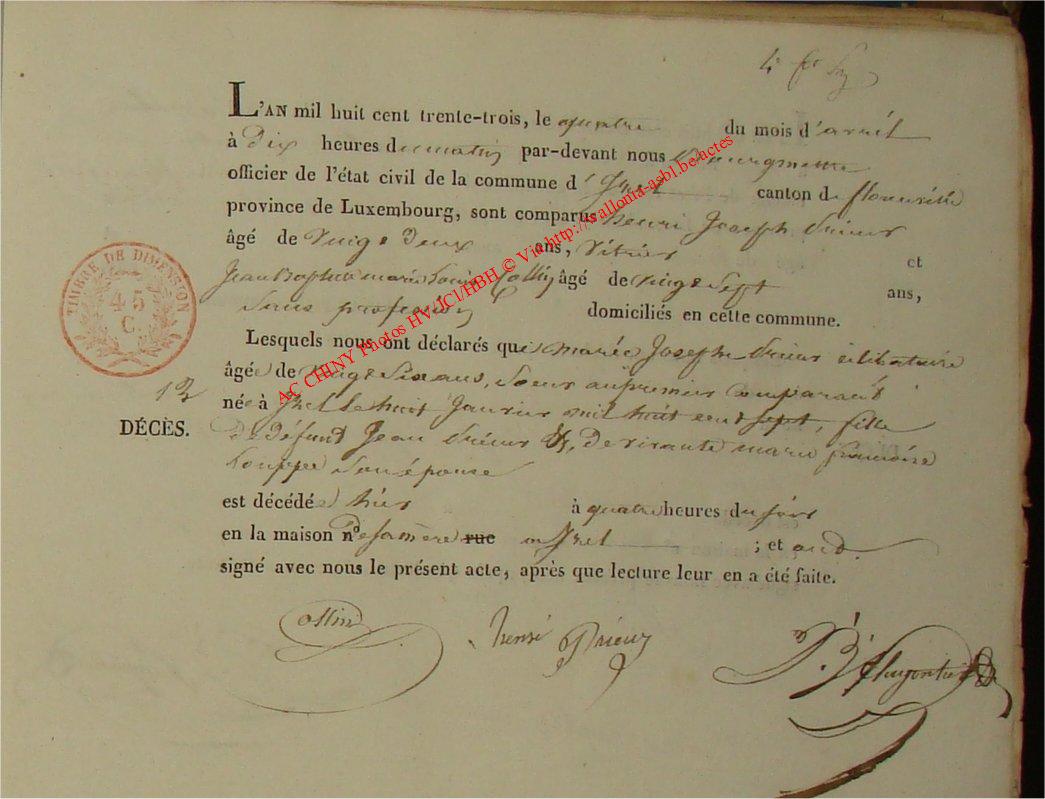 L'AN mil huit cent trente-trois, le quatre du mois d'avril
à Dix heures du matin par-devant nous Bourgmestre
officier de l'état civil de la commune d' Izel canton de florenville
province de Luxembourg, sont comparus henri Joseph Prieur
âgé de Vingt Deux ans, Vitrier et
Jean Baptiste marie Louis Collin âgé de Vingt Sept ans,
Sans profession domiciliés en cette commune.
Lesquels nous ont déclarés que marie Joseph Prieur célibataire
âgée de Vingt Six ans, Soeur au premier Comparant
née à Izel le huit Janvier mil huit cent sept, fille
De défunt Jean Prieur et De vivante marie françoise
Son épouse
est décédée hier à quatre heures du soir
en la maison n° De sa mère rue Izel ; et ont
signé avec nous le présent acte, après que lecture leur en a été faite.
DÉCÈS.
TIMBRE DE DIMENSION
45
C.
Collin
henri Prieur
AC CHINY Photos HV/JC1/HBH © Via http://wallonia-asbl.be/actes